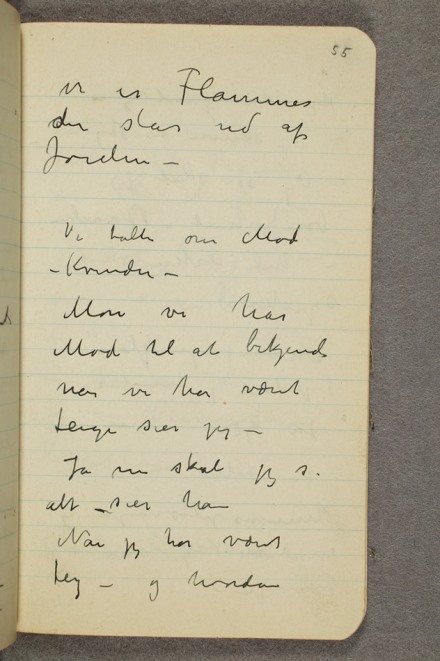 55
vi er Flammer
der slaar ud af
Jorden –
Vi talte om Mod
– Kvinder –
Mon vi har
Mod til at bekjende
naar vi har været
feige sier jeg –
Ja nu skal jeg s.
alt – sier han
Naar jeg har været
feig – og hvordan